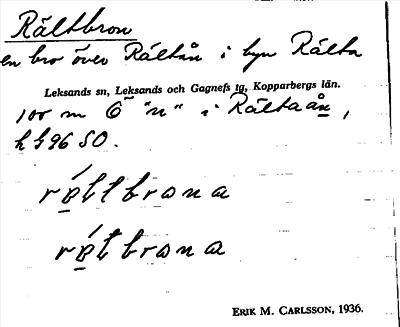 Rältbron
en bro över Rältån i byn Rälta
Leksands sn, Leksands och Gagnefs tg, Kopparbergs län.
100 m Ö "n" i Rältaån,
h h 96 SO.
rѐltbrona
rѐtbrona
ERIK M. CARLSSON, 1936.